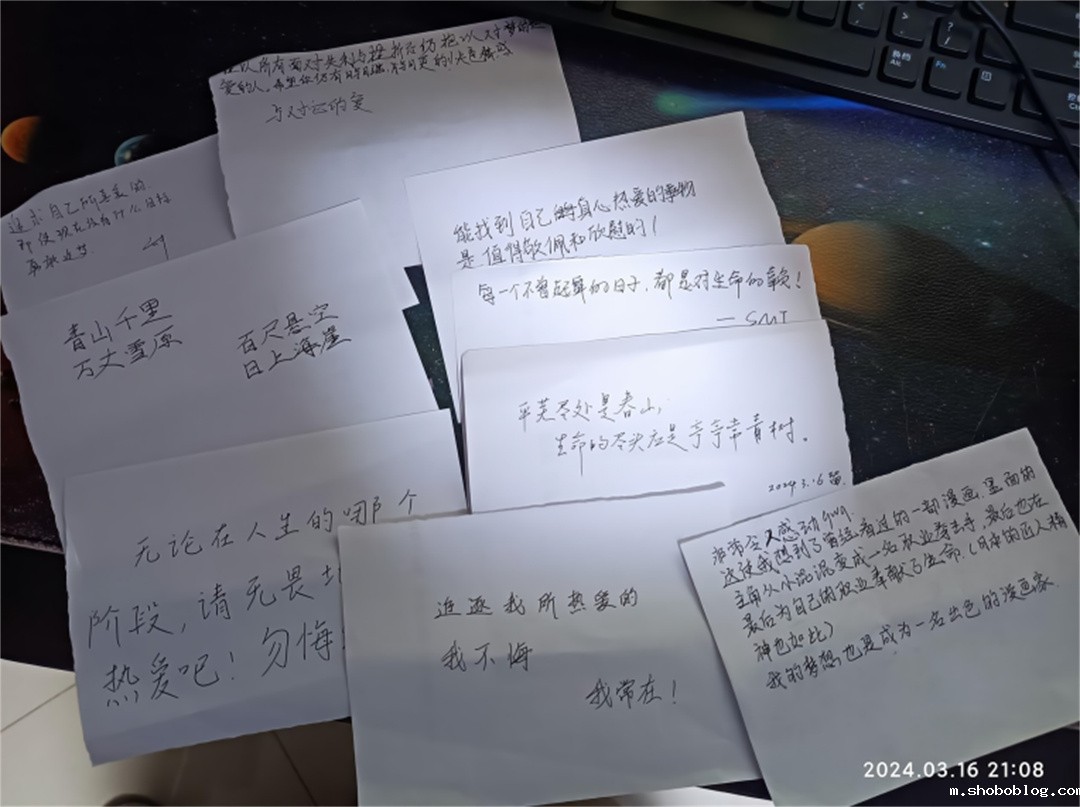 所有面对失利与挫折后仍抱以
爱的人，希望你仍有
与对它的爱
追求自己所喜爱的
即使现在没有什么目标
能找到自己身心热爱的事物
是值得敬佩和欣慰的！
每一个不曾起舞的日子，都是对生命的辜负！
— SMT
青山千里
万丈雪原
百尺悬空
日上海崖
平芜尽处是春山，
生命的尽头应是亭亭常青树。
2024.3.16
无论在人生的哪个
阶段，请无畏地
热爱吧！勿悔！
追逐我所热爱的
我不悔
我常在！
非常令人感动
这使我想到了曾经看过的一部漫画，里面的
主角从小混混变成一名职业拳击手，最后也在
最后为自己的职业奉献了生命（日本的匠人精
神也如此）
我的梦想也是成为一名出色的漫画家
Alt
Fn
Ctrl
2024.03.16 21:08
m.shoboblog.com